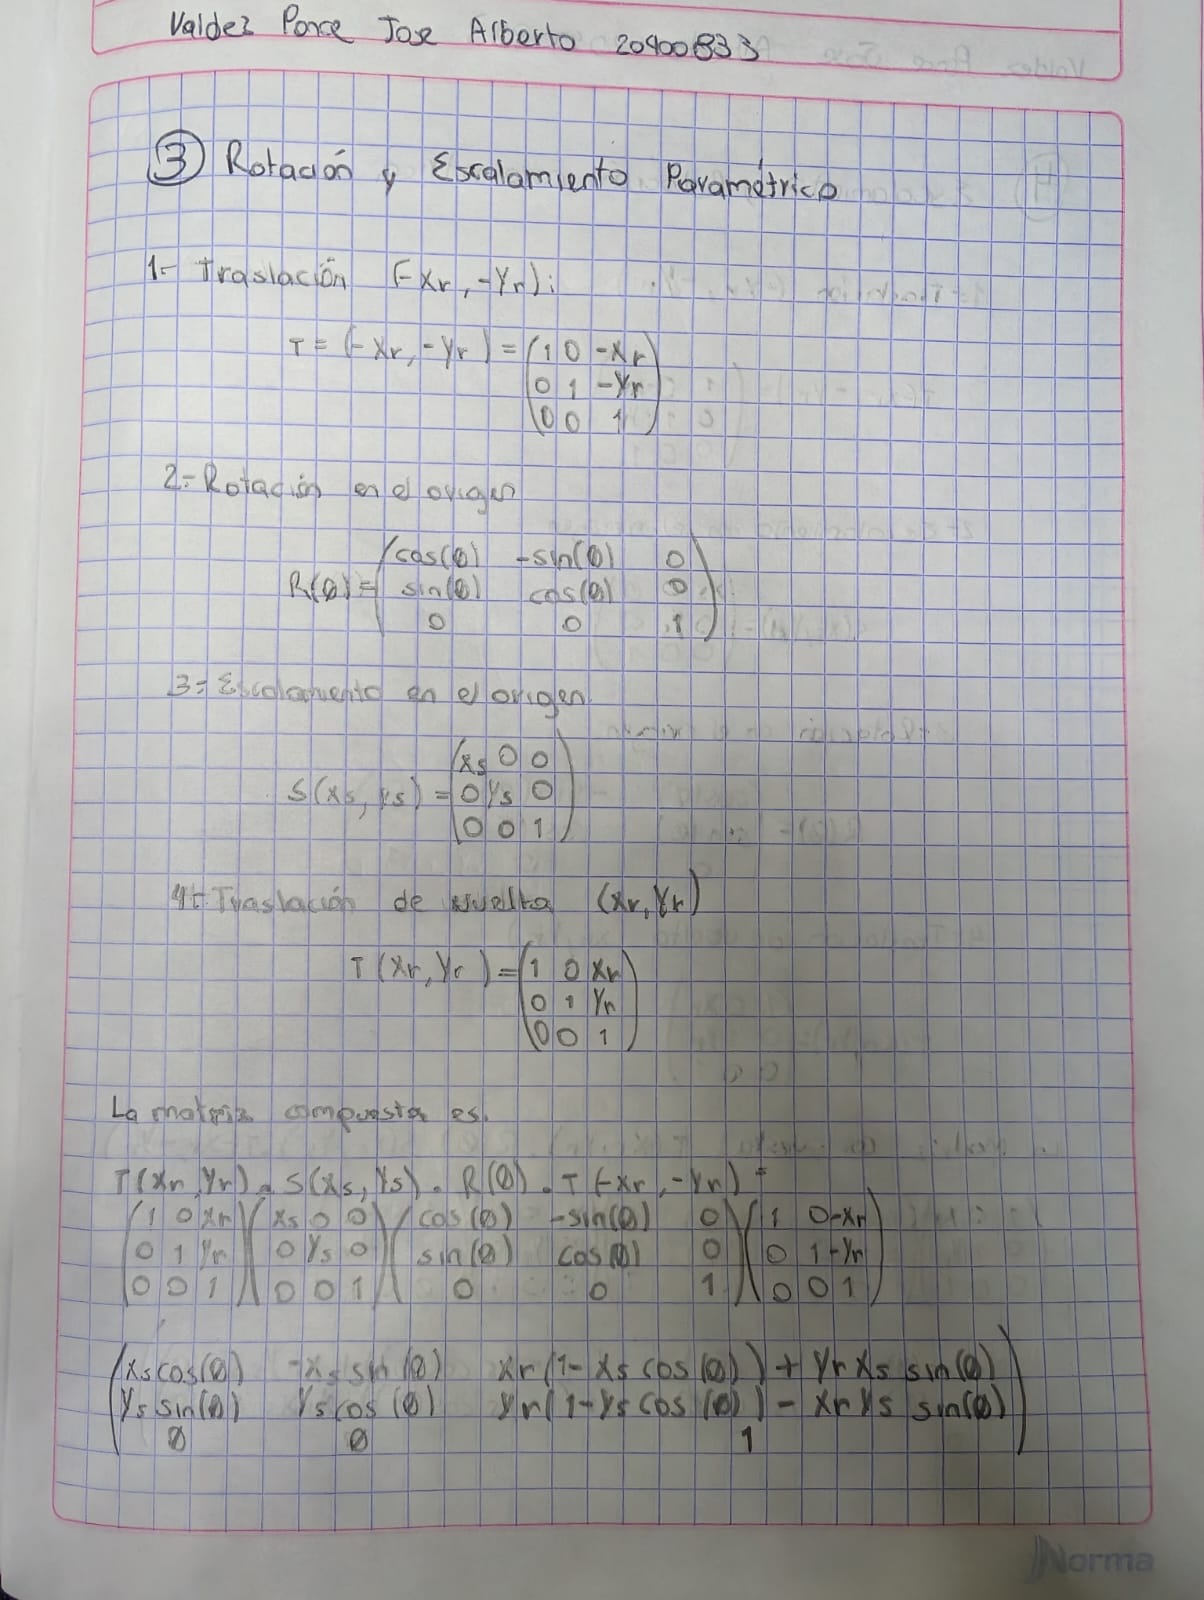 Valdez Ponce Jose Alberto 20400833
③ Rotación y Escalamiento Paramétrico
1- Traslación (-Xr, -Yr):
T = (-Xr, -Yr) = (1 0 -Xr)
(0 1 -Yr)
(0 0 1)
2- Rotación en el origen
(cos(θ) -sin(θ) 0)
R(θ) = (sin(θ) cos(θ) 0)
(0 0 1)
3- Escalamiento en el origen
(Xs 0 0)
S(Xs, Ys) = (0 Ys 0)
(0 0 1)
4- Traslación de vuelta (Xr, Yr)
T(Xr, Yr) = (1 0 Xr)
(0 1 Yr)
(0 0 1)
La matriz compuesta es.
T(Xr, Yr) . S(Xs, Ys) . R(θ) . T(-Xr, -Yr) =
(1 0 Xr)(Xs 0 0)(cos(θ) -sin(θ) 0)(1 0 -Xr)
(0 1 Yr)(0 Ys 0)(sin(θ) cos(θ) 0)(0 1 -Yr)
(0 0 1)(0 0 1)(0 0 1)(0 0 1)
(Xs cos(θ) -Xs sin(θ) Xr(1- Xs cos(θ)) + Yr Xs sin(θ))
(Ys sin(θ) Ys cos(θ) Yr(1- Ys cos(θ)) - Xr Ys sin(θ))
(0 0 1)
Norma